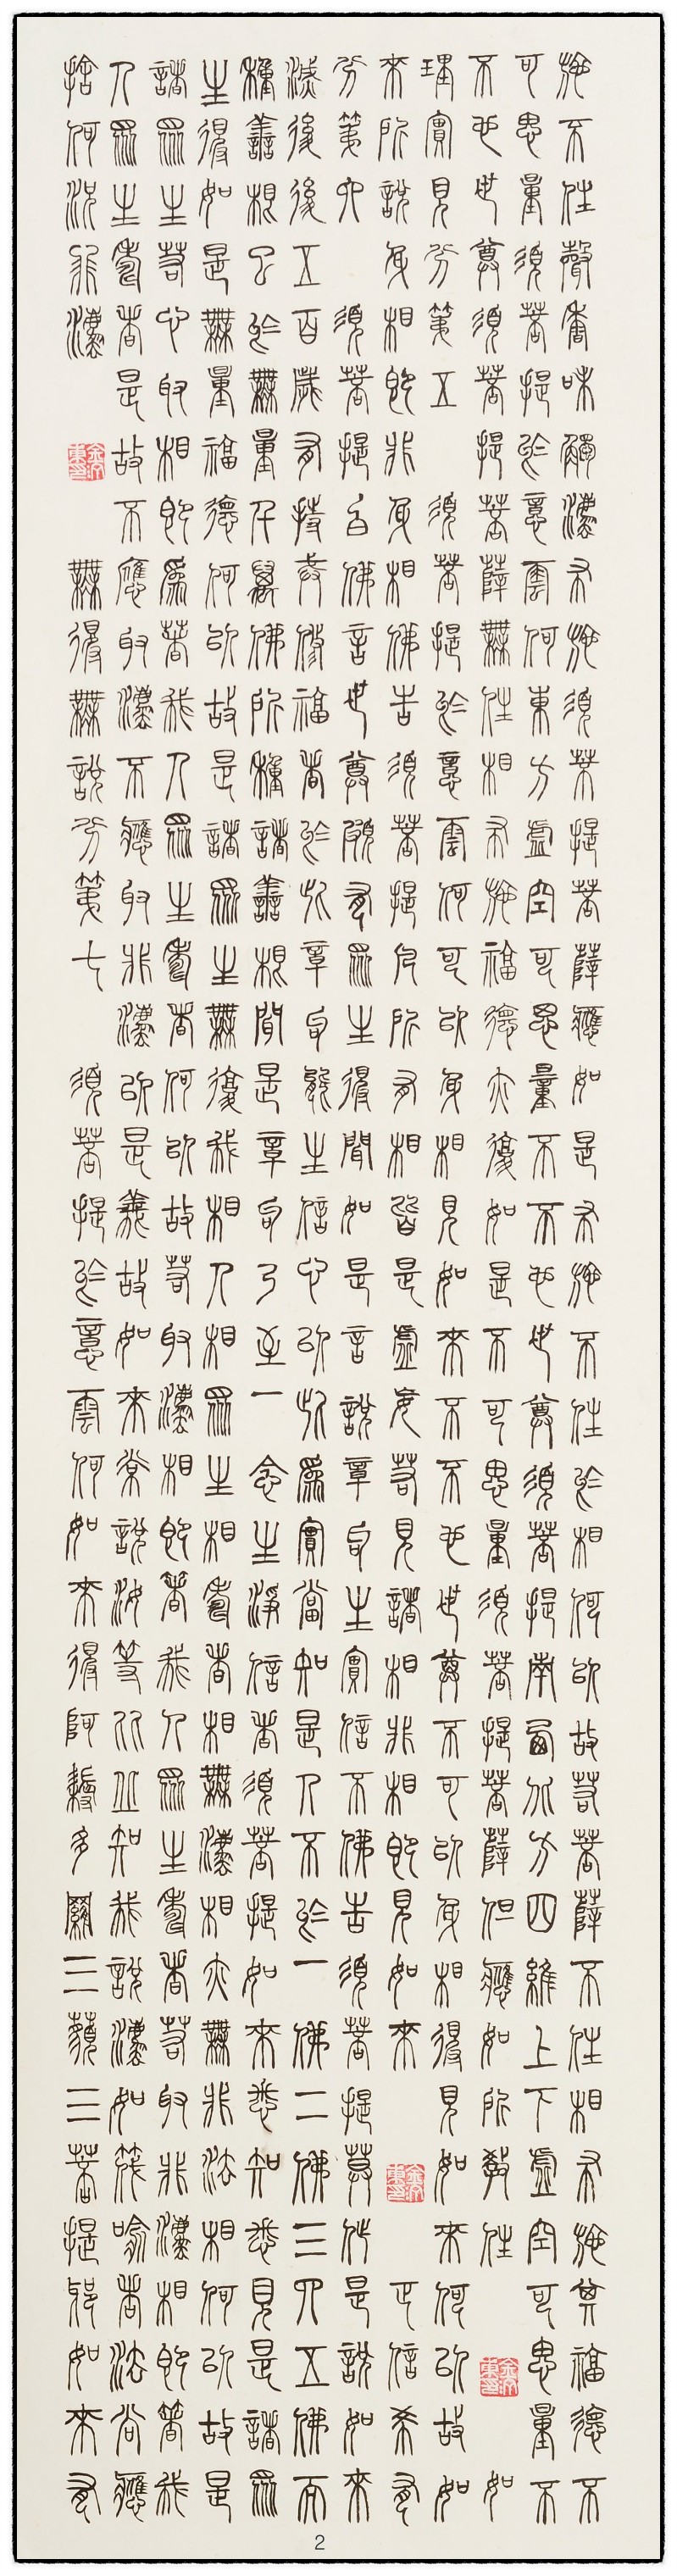 施不住聲香味觸法布施須菩提菩薩應如是布施不住於相何以故若菩薩不住相布施其福德不
可思量須菩提於意雲何東方虛空可思量不不也世尊須菩提南西北方四維上下虛空可思量不
不也世尊須菩提菩薩無住相布施福德亦復如是不可思量須菩提菩薩但應如所教住 如
理實見分第五 須菩提於意雲何可以身相見如來不不也世尊不可以身相得見如來何以故如
來所說身相即非身相佛告須菩提凡所有相皆是虛妄若見諸相非相即見如來 正信希有
分第六 須菩提白佛言世尊頗有眾生得聞如是言說章句生實信不佛告須菩提莫作是說如來
滅後後五百歲有持戒修福者於此章句能生信心以此為實當知是人不於一佛二佛三四五佛而
種善根已於無量千萬佛所種諸善根聞是章句乃至一念生淨信者須菩提如來悉知悉見是諸眾
生得如是無量福德何以故是諸眾生無復我相人相眾生相壽者相無法相亦無非法相何以故是
諸眾生若心取相即為著我人眾生壽者何以故若取法相即著我人眾生壽者若取非法相即著我
人眾生壽者是故不應取法不應取非法以是義故如來常說汝等比丘知我說法如筏喻者法尚應
捨何況非法 無得無說分第七 須菩提於意雲何如來得阿耨多羅三藐三菩提耶如來有
2